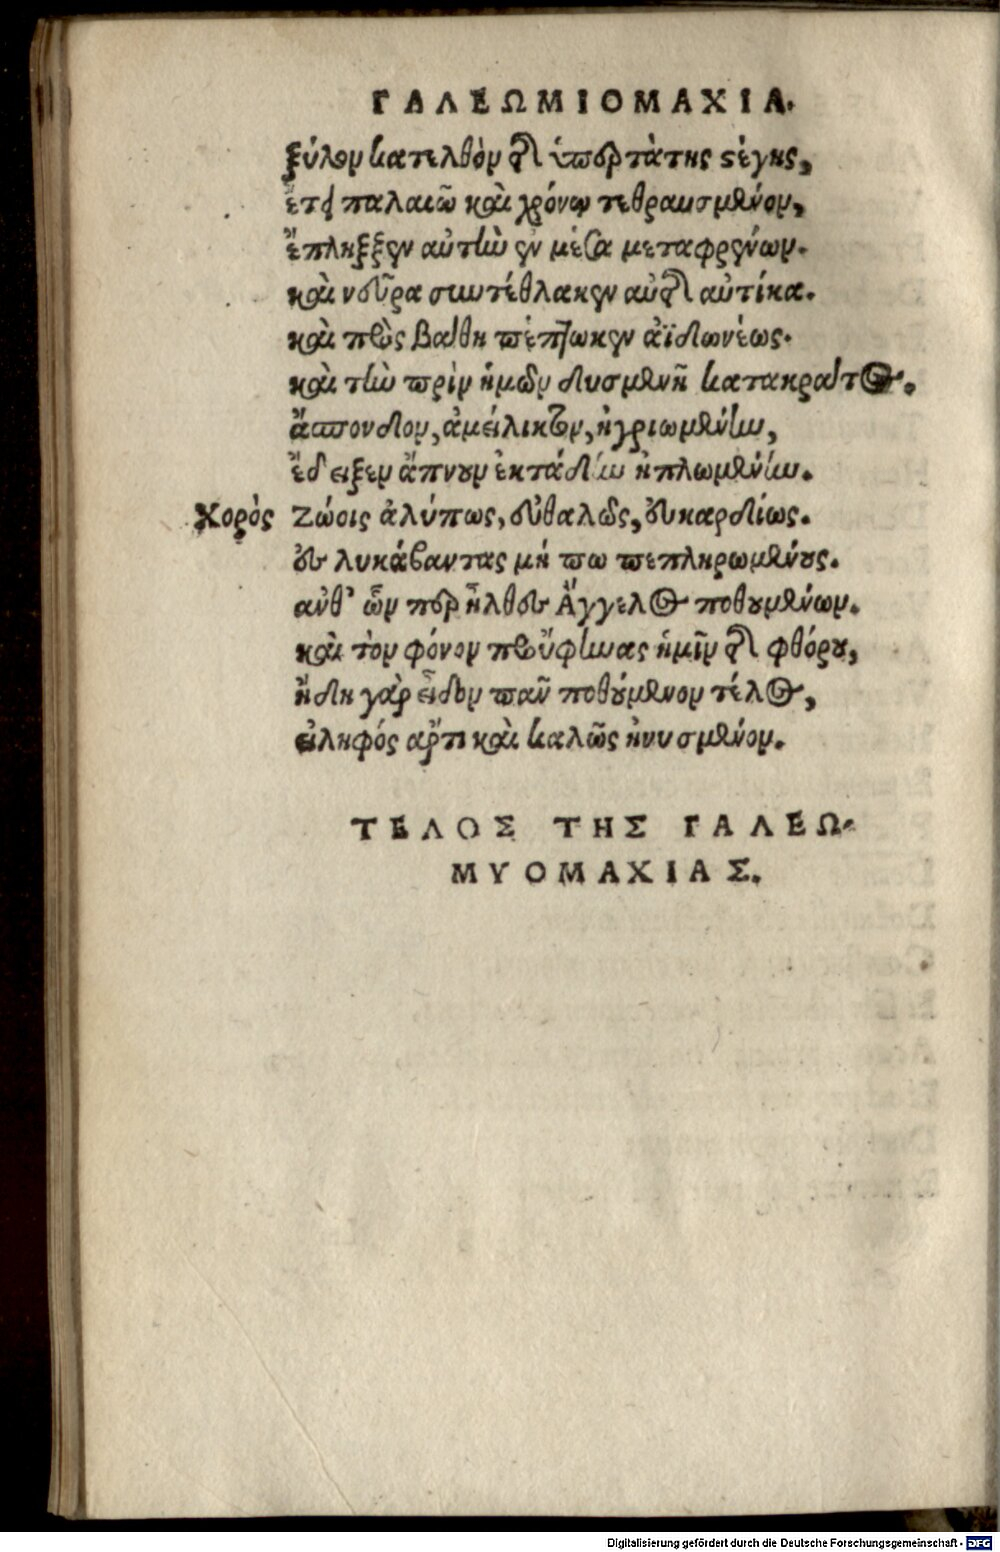 ΓΑΛΕΩΜΙΟΜΑΧΙΑ.
ξύλον κατελθὸν ἐξ ὑπερτάτης στέγης,
ἔτι παλαιῷ καὶ χρόνῳ τεθραυσμένον,
ἔπληξξεν αὐτὴν ἐν μέσα μεταφρένων.
καὶ νεῦρα συντέθλακεν αὐτῆς αὐτίκα.
καὶ πρὸς βάθη πέπτωκεν ἀϊδωνέως.
καὶ τὴν πρὶν ἡμῶν δυσμενῆ κατακράτος.
ἄσπονδον, ἀμείλικτον, ἠγριωμένην,
ἔδειξεν ἄπνουν ἐκτάδην ἡπλωμένην.
Χορὸς Ζώοις ἀλύπως, εὐθαλῶς, εὐκαρδίως.
εἰς λυκάβαντας μή πω πεπληρωμένους.
ἀνθ' ὧν περ ἦλθες Ἄγγελος ποθουμένων.
καὶ τὸν φόνον προὔφηνας ἡμῖν ἐξ φθόρου,
ἤδη γὰρ εἶδον πᾶν ποθούμενον τέλος,
εἰληφός ἄρτι καὶ καλῶς ἠνυσμένον.
ΤΕΛΟΣ ΤΗΣ ΓΑΛΕΩ-
ΜΥΟΜΑΧΙΑΣ.
Digitalisierung gefördert durch die Deutsche Forschungsgemeinschaft - DFG